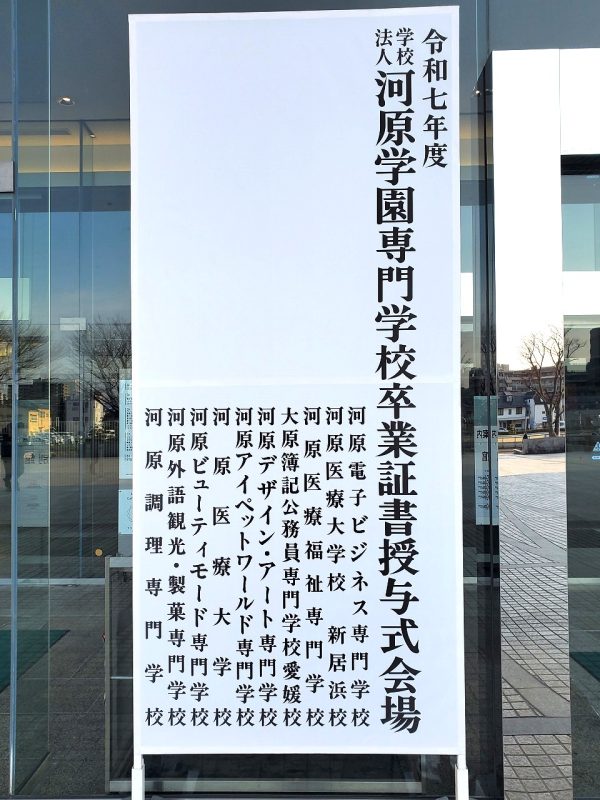 令和七年度
学校法人 河原学園専門学校卒業証書授与式会場
河原電子ビジネス専門学校
河原医療大学校 新居浜校
河原医療福祉専門学校
大原簿記公務員専門学校愛媛校
河原デザイン・アート専門学校
河原アイペットワールド専門学校
河原医療大学校
河原ビューティモード専門学校
河原外語観光・製菓専門学校
河原調理専門学校